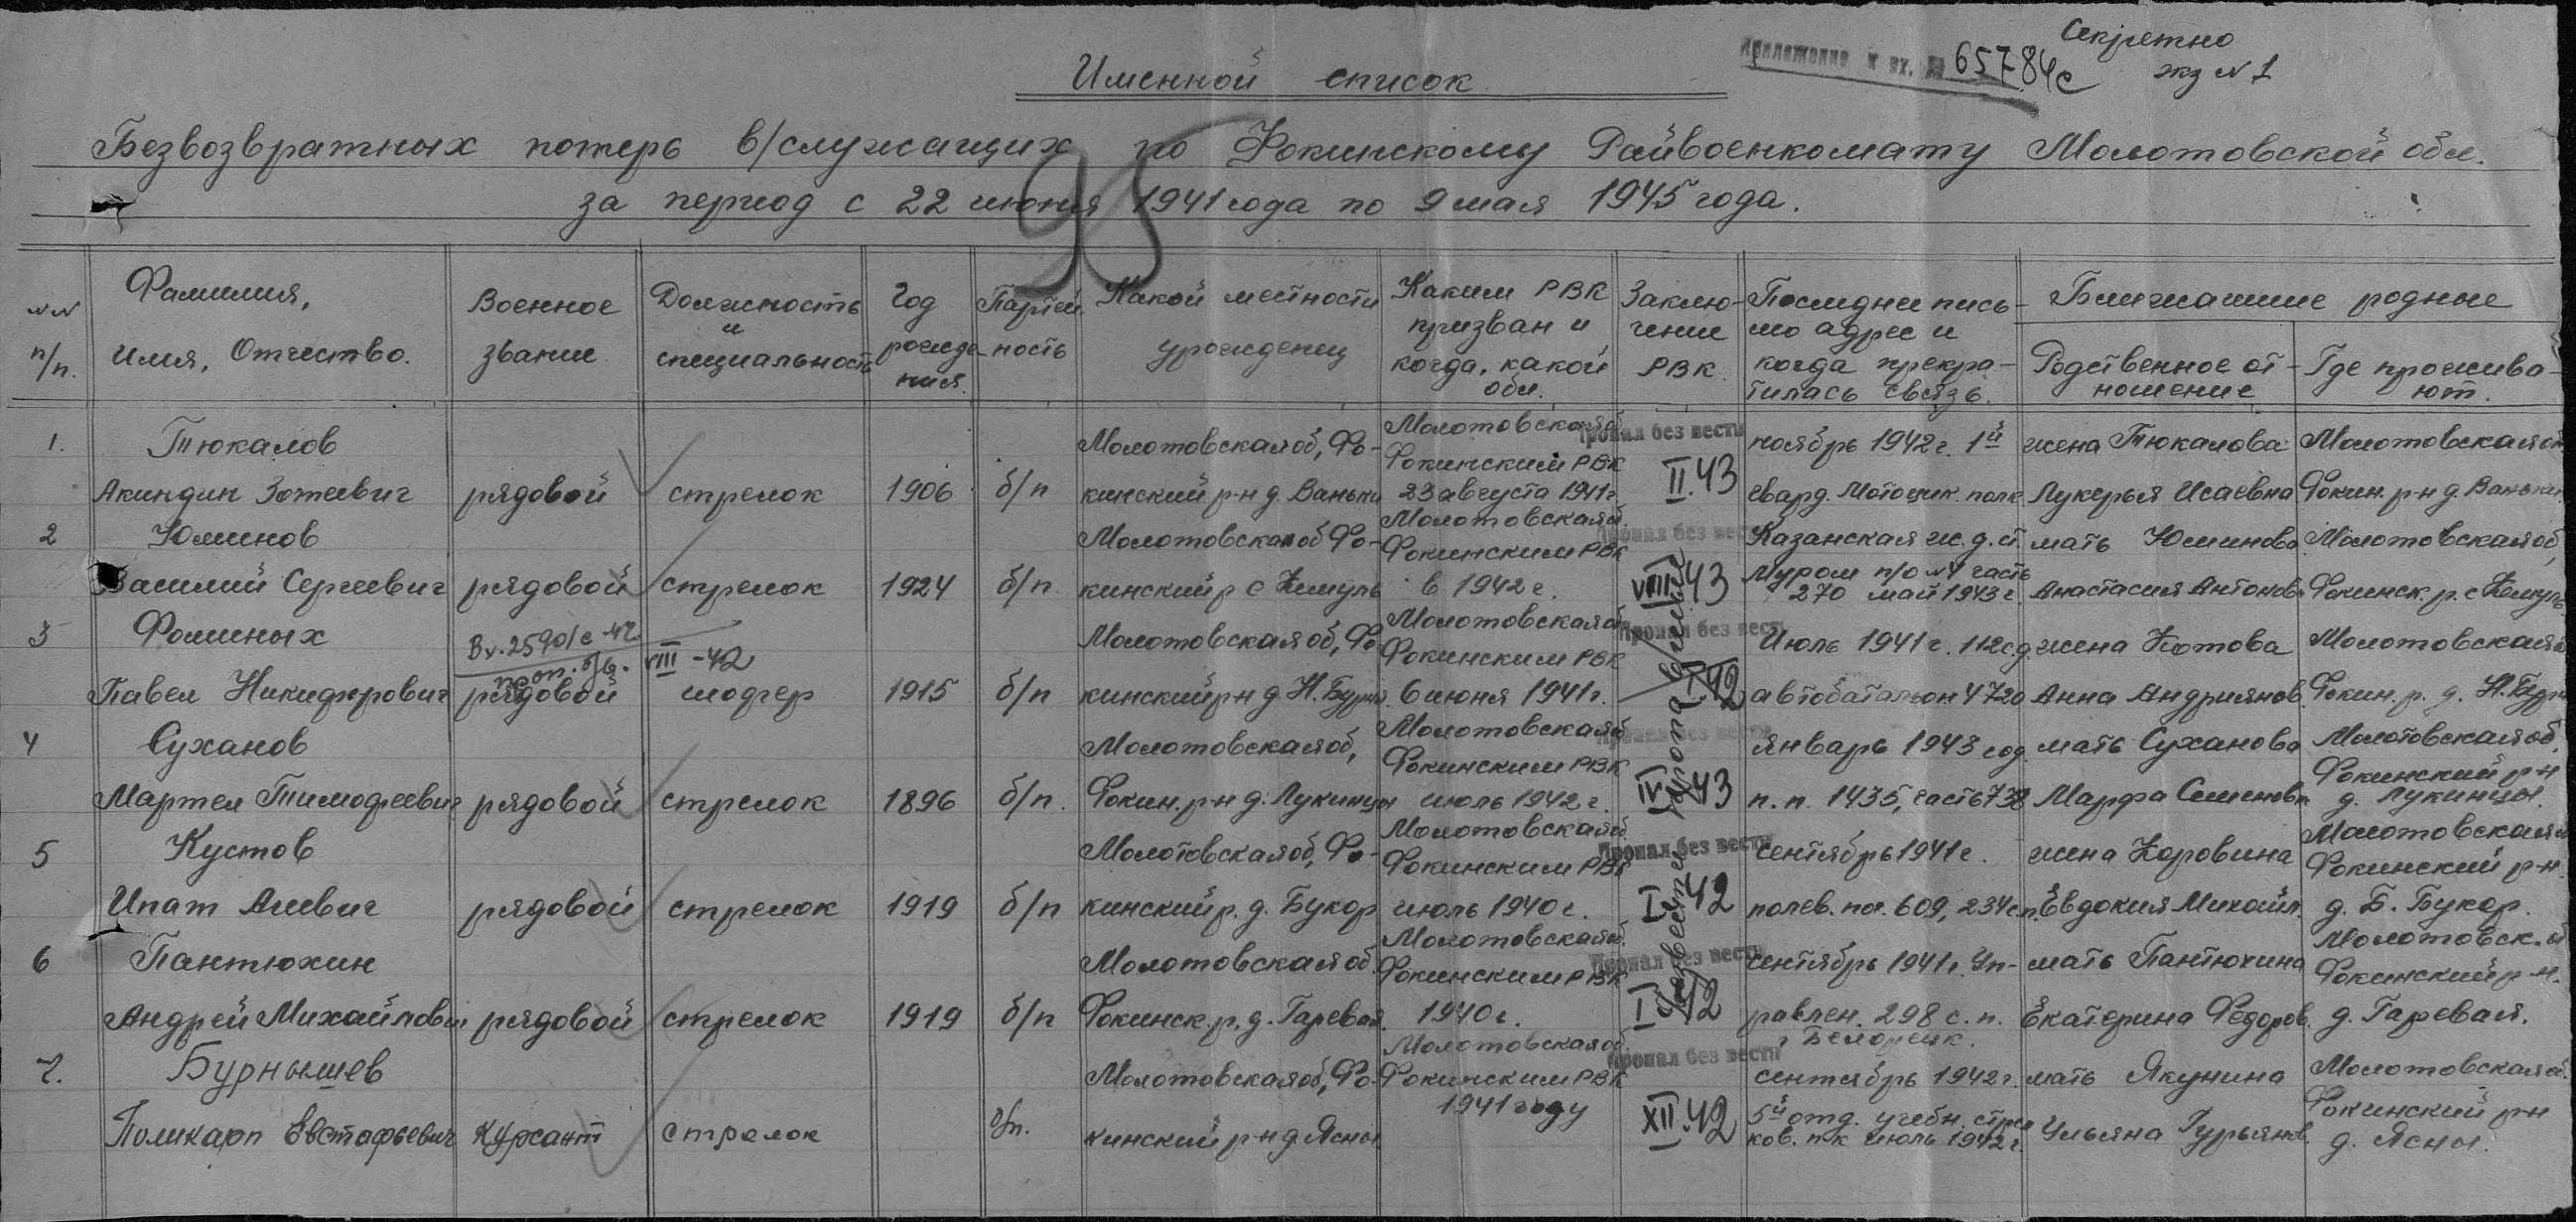 Секретно
экз N 1
Приложение к вх. № 65784с
Именной список
Безвозвратных потерь в/служащих по Фокинскому Райвоенкомату Молотовской обл.
за период с 22 июня 1941 года по 9 мая 1945 года.
98
NN п/п.
Фамилия, Имя, Отчество.
Военное звание
Должность и специальность
Год рождения.
Партейность
Какой местности урожденец
Каким РВК призван и когда, какой обл.
Заключение РВК
Последнее письмо адрес и когда прекратилась связь.
Ближайшие родные
Родственное отношение
Где проживают.
1. Тюкалов Молотовская об, Фо- Молотовская об Пропал без вести ноябрь 1942 г. 1й жена Тюкалова Молотовская об
Фокинским РВК
Акиндин Зотеевич рядовой стрелок 1906 б/п кинский р-н д. Ваньки 23 августа 1941 г. II.43 гвард. Мотоцик. полк Лукерья Исаевна Фокин. р-н д. Ваньки
2 Юминов Молотовская об Фо- Молотовская об. Фокинским РВК Пропал без вести Казанская ж.д. ст. мать Юминова Молотовская об,
Василий Сергеевич рядовой стрелок 1924 б/п. кинский р с Кемуль в 1942 г. VIII.43 Муром п/о N4 часть 270 май 1943 г. Анастасия Антонов. Фокинск. р. с Кемуль
3 Фоминых Молотовская об, Фо Молотовская об Фокинским РВК Пропал без вести Июль 1941 г. 112 с.д. жена Котова Молотовская
Вх. 2590/с-42 VIII-42
Павел Никифорович рядовой шофер 1915 б/п кинский р н д Н. Бурня. 6 июня 1941 г. автобатальон 4720 Анна Андриянов. Фокин. р. д. Н. Бурн
4 Суханов Молотовская об, Молотовская об Фокинским РВК Пропал без вести январь 1943 год. мать Суханова Молотовская об.
Мартел Тимофеевич рядовой стрелок 1896 б/п. Фокин. р-н д. Лукинцы июль 1942 г. IV 43 п.п. 1435, часть 738 Марфа Семеновн Фокинский р н д. Лукинцы.
5 Кустов Молотовская об, Фо- Молотовская об. Фокинским РВК Пропал без вести сентябрь 1941 г. жена Коровина Молотовская Фокинский р-н
Ипат Алевич рядовой стрелок 1919 б/п кинский р. д. Букор июль 1940 г. I 42 полев. поч. 609, 234 с.п. Евдокия Михайл. д. Б. Букор.
6 Пантюхин Молотовская об. Молотовская об. Фокинским РВК Пропал без вести сентябрь 1941 г. Уп- мать Пантюхина Молотовск. о Фокинский р-н.
Андрей Михайлович рядовой стрелок 1919 б/п Фокинск. р. д. Гаревая. 1940 г. I 42 равлен. 298 с. п. Екатерина Федоров. д. Гаревая.
г Белорецк.
7. Бурнышев Молотовская об, Фо- Молотовская об. Фокинским РВК Пропал без вести сентябрь 1942 г. мать Якунина Молотовская об.
1941 году
Поликарп Евстафьевич Курсант стрелок б/п. кинский р-н д Ясны XII.42 5й отд. учебн. стрел ков. п-к июль 1942 г. Ульяна Гурьянов. Фокинский р н д. Ясны.